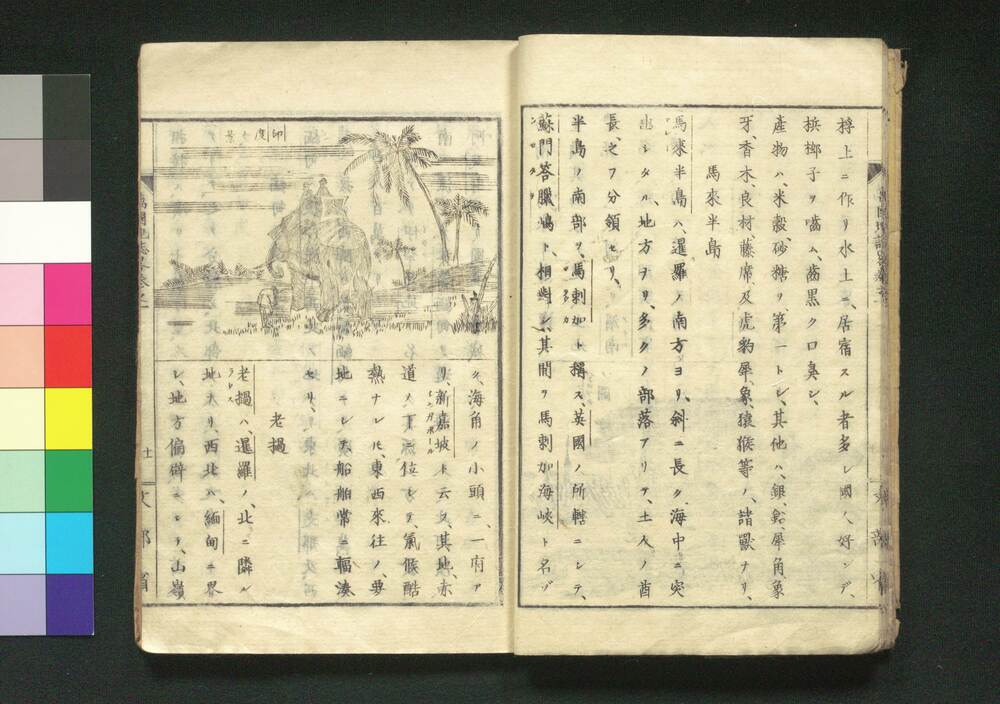 桴上ニ作リ水土ニ、居宿スル者多シ國人好ンデ、
檳榔子ヲ嚙ム、齒黒ク口臭シ、
產物ハ、米穀、砂糖ヲ、第一トシ、其他ハ、銀、鉛、犀角、象
牙、香木、良材、藤席、及虎豹、犀、象、猿猴等ノ、諸獸ナリ、
馬來半島
馬來半島ハ、暹羅ノ南方ヨリ、斜ニ長ク、海中ニ突
出シタル、地方ナリ、多クノ部落アリテ、土人ノ酋
長、之ヲ分領セリ、
半島ノ南部ヲ、馬剌加ト稱ス、英國ノ所轄ニシテ、
蘇門答臘嶋ト、相對シ、其間ヲ馬剌加海峽ト名ヅ
ク、海角ノ小頭ニ、一府ア
リ、新嘉坡ト云フ、其地、赤
道ノ下ニ位シテ、氣候酷
熱ナレ𪜈、東西來往ノ、要
地ニシテ、船舶常ニ輻湊
セリ、
老撾
老撾ハ、暹羅ノ、北ニ隣ル
地ナリ、西北ハ、緬甸ニ界
シ、地方偏僻ニシテ、山嶺
印度ノ景
文部省